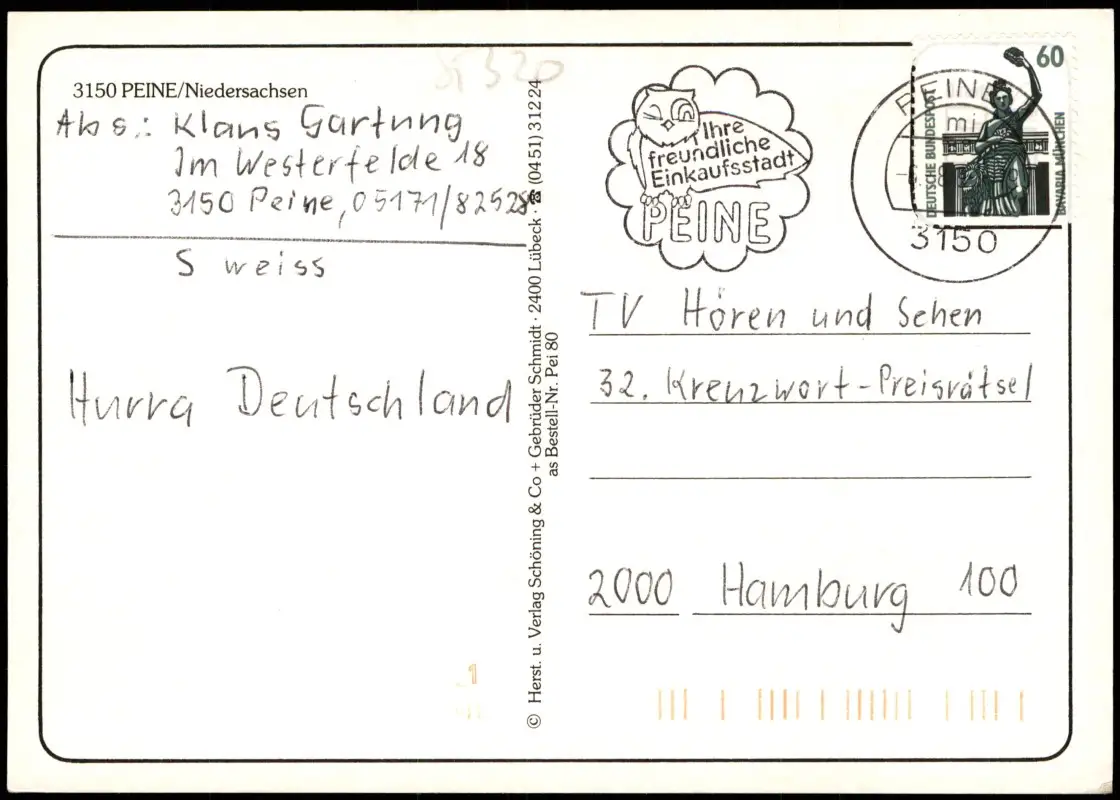 3150 PEINE/Niedersachsen
Abs.: Klaus Gartung
Im Westerfelde 18
3150 Peine, 05171/82528
S weiss
Hurra Deutschland
© Herst. u. Verlag Schöning & Co + Gebrüder Schmidt · 2400 Lübeck · ☎ (0451) 31224
as Bestell-Nr. Pei 80
Ihre
freundliche
Einkaufsstadt
PEINE
PEINE
3150
60
DEUTSCHE BUNDESPOST
BAVARIA MÜNCHEN
TV Hören und Sehen
32. Kreuzwort-Preisrätsel
2000 Hamburg 100
1